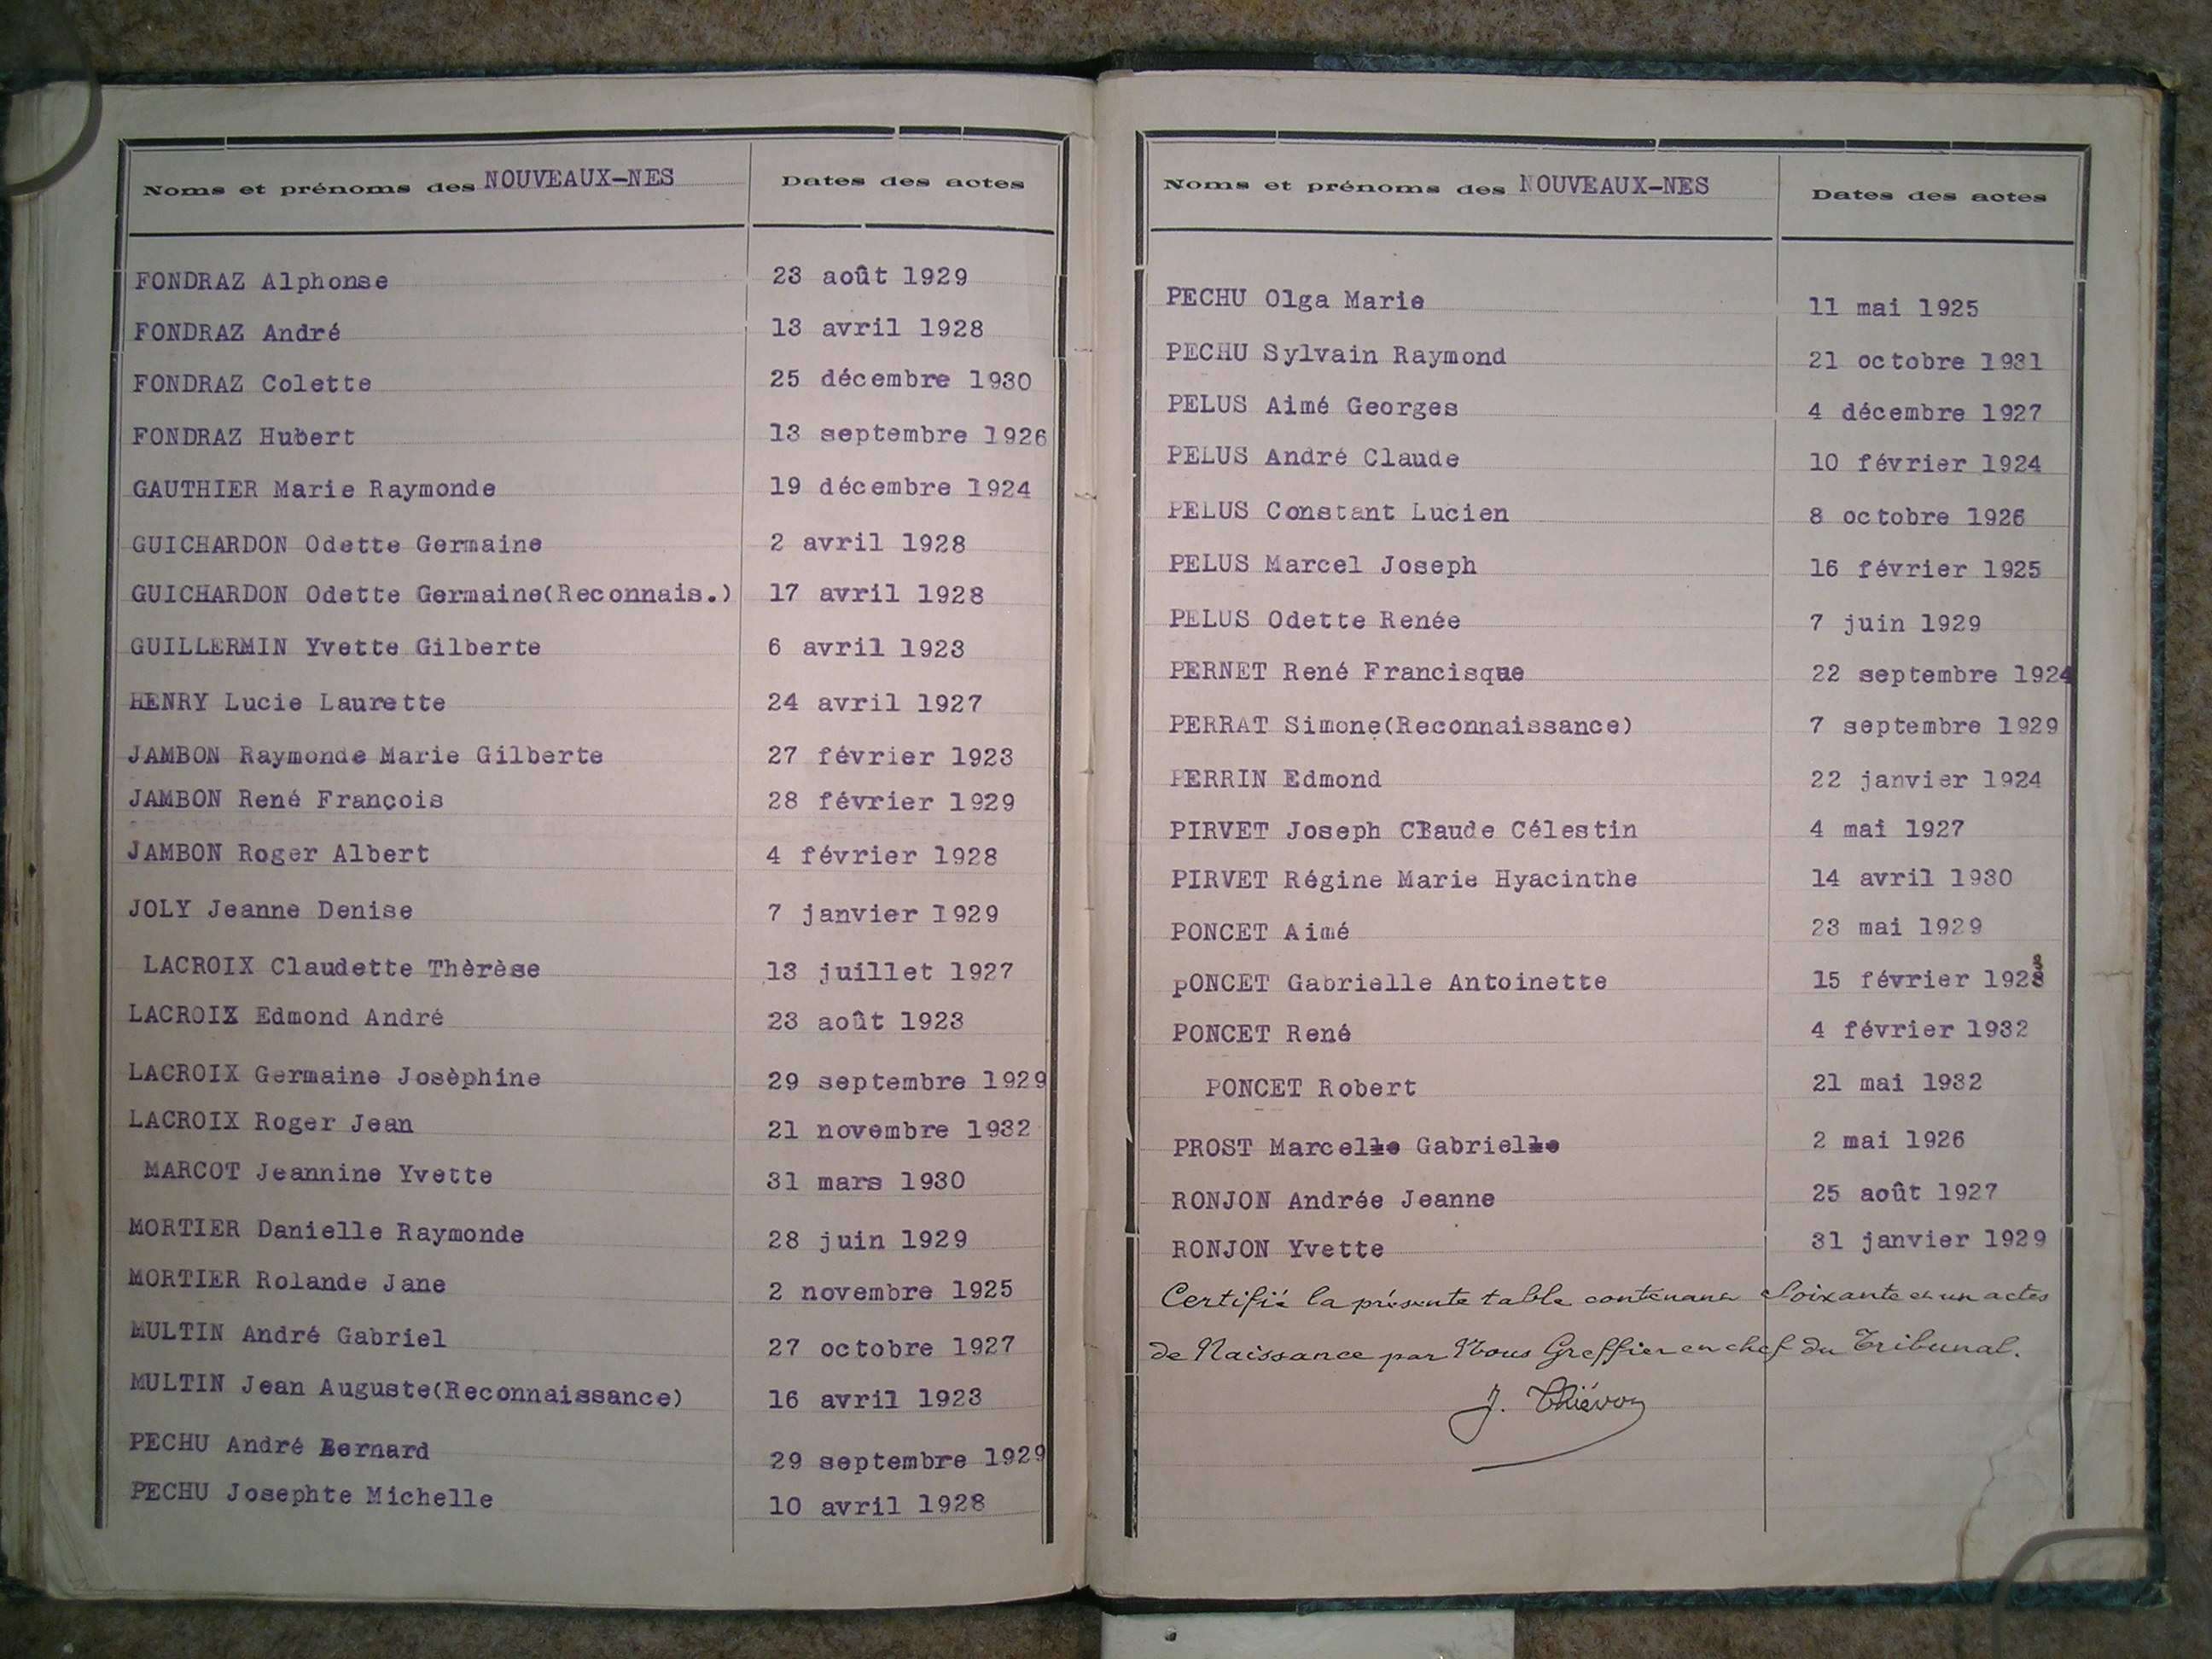 Noms et prénoms des NOUVEAUX-NES Dates des actes
FONDRAZ Alphonse 23 août 1929
FONDRAZ André 13 avril 1928
FONDRAZ Colette 25 décembre 1930
FONDRAZ Hubert 13 septembre 1926
GAUTHIER Marie Raymonde 19 décembre 1924
GUICHARDON Odette Germaine 2 avril 1928
GUICHARDON Odette Germaine(Reconnais.) 17 avril 1928
GUILLERMIN Yvette Gilberte 6 avril 1923
HENRY Lucie Laurette 24 avril 1927
JAMBON Raymonde Marie Gilberte 27 février 1923
JAMBON René François 28 février 1929
JAMBON Roger Albert 4 février 1928
JOLY Jeanne Denise 7 janvier 1929
LACROIX Claudette Thèrèse 13 juillet 1927
LACROIX Edmond André 23 août 1923
LACROIX Germaine Josèphine 29 septembre 1929
LACROIX Roger Jean 21 novembre 1932
MARCOT Jeannine Yvette 31 mars 1930
MORTIER Danielle Raymonde 28 juin 1929
MORTIER Rolande Jane 2 novembre 1925
MULTIN André Gabriel 27 octobre 1927
MULTIN Jean Auguste(Reconnaissance) 16 avril 1923
PECHU André Bernard 29 septembre 1929
PECHU Josephte Michelle 10 avril 1928
Noms et prénoms des NOUVEAUX-NES Dates des actes
PECHU Olga Marie 11 mai 1925
PECHU Sylvain Raymond 21 octobre 1931
PELUS Aimé Georges 4 décembre 1927
PELUS André Claude 10 février 1924
PELUS Constant Lucien 8 octobre 1926
PELUS Marcel Joseph 16 février 1925
PELUS Odette Renée 7 juin 1929
PERNET René Francisque 22 septembre 1924
PERRAT Simone(Reconnaissance) 7 septembre 1929
PERRIN Edmond 22 janvier 1924
PIRVET Joseph Claude Célestin 4 mai 1927
PIRVET Régine Marie Hyacinthe 14 avril 1930
PONCET Aimé 23 mai 1929
pONCET Gabrielle Antoinette 15 février 1923
PONCET René 4 février 1932
PONCET Robert 21 mai 1932
PROST Marcelle Gabrielle 2 mai 1926
RONJON Andrée Jeanne 25 août 1927
RONJON Yvette 31 janvier 1929
Certifié la présente table contenant Soixante et un actes
de Naissance par Nous Greffier en chef du Tribunal.
J. Thiévon